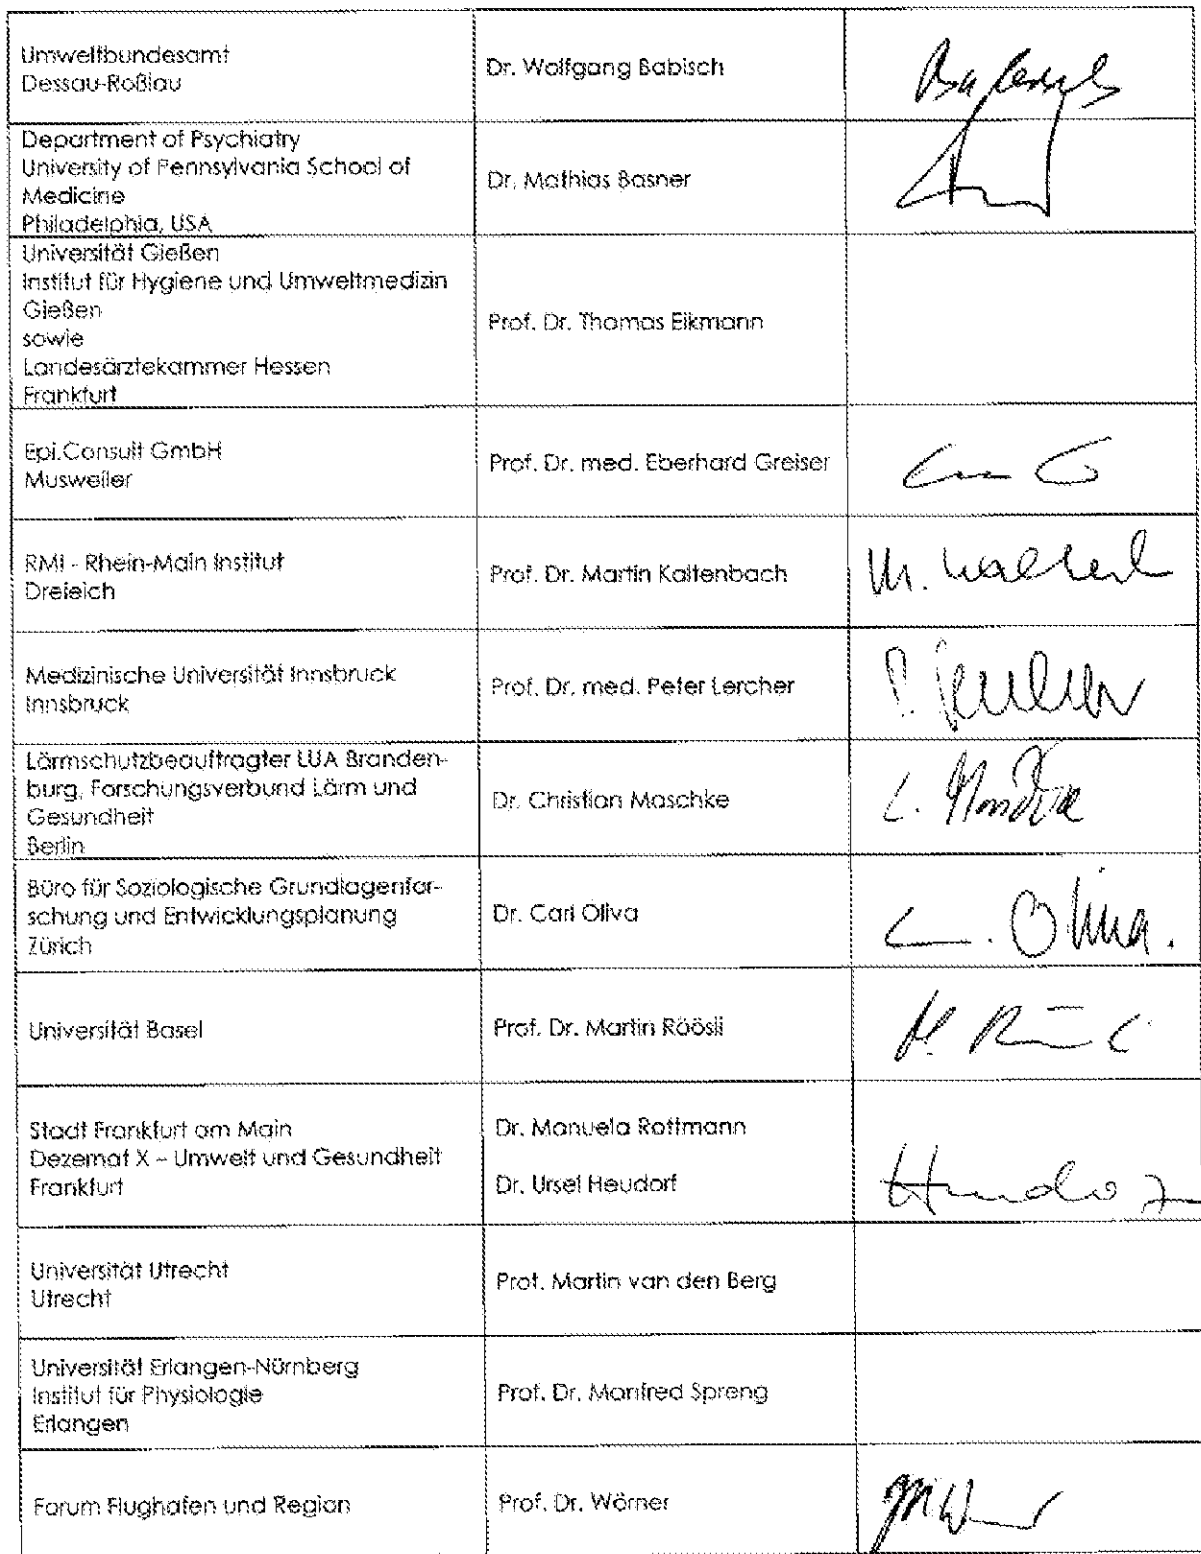 Umweltbundesamt
Dessau-Roßlau
Dr. Wolfgang Babisch
Department of Psychiatry
University of Pennsylvania School of
Medicine
Philadelphia, USA
Dr. Mathias Basner
Universität Gießen
Institut für Hygiene und Umweltmedizin
Gießen
sowie
Landesärztekammer Hessen
Frankfurt
Prof. Dr. Thomas Eikmann
Epi.Consult GmbH
Musweiler
Prof. Dr. med. Eberhard Greiser
RMI - Rhein-Main Institut
Dreieich
Prof. Dr. Martin Kaltenbach
Medizinische Universität Innsbruck
Innsbruck
Prof. Dr. med. Peter Lercher
Lärmschutzbeauftragter LUA Branden-
burg, Forschungsverbund Lärm und
Gesundheit
Berlin
Dr. Christian Maschke
Büro für Soziologische Grundlagenfor-
schung und Entwicklungsplanung
Zürich
Dr. Carl Oliva
C. Oliva.
Universität Basel
Prof. Dr. Martin Röösli
Stadt Frankfurt am Main
Dezernat X – Umwelt und Gesundheit
Frankfurt
Dr. Manuela Rottmann
Dr. Ursel Heudorf
Universität Utrecht
Utrecht
Prof. Martin van den Berg
Universität Erlangen-Nürnberg
Institut für Physiologie
Erlangen
Prof. Dr. Manfred Spreng
Forum Flughafen und Region
Prof. Dr. Wörner